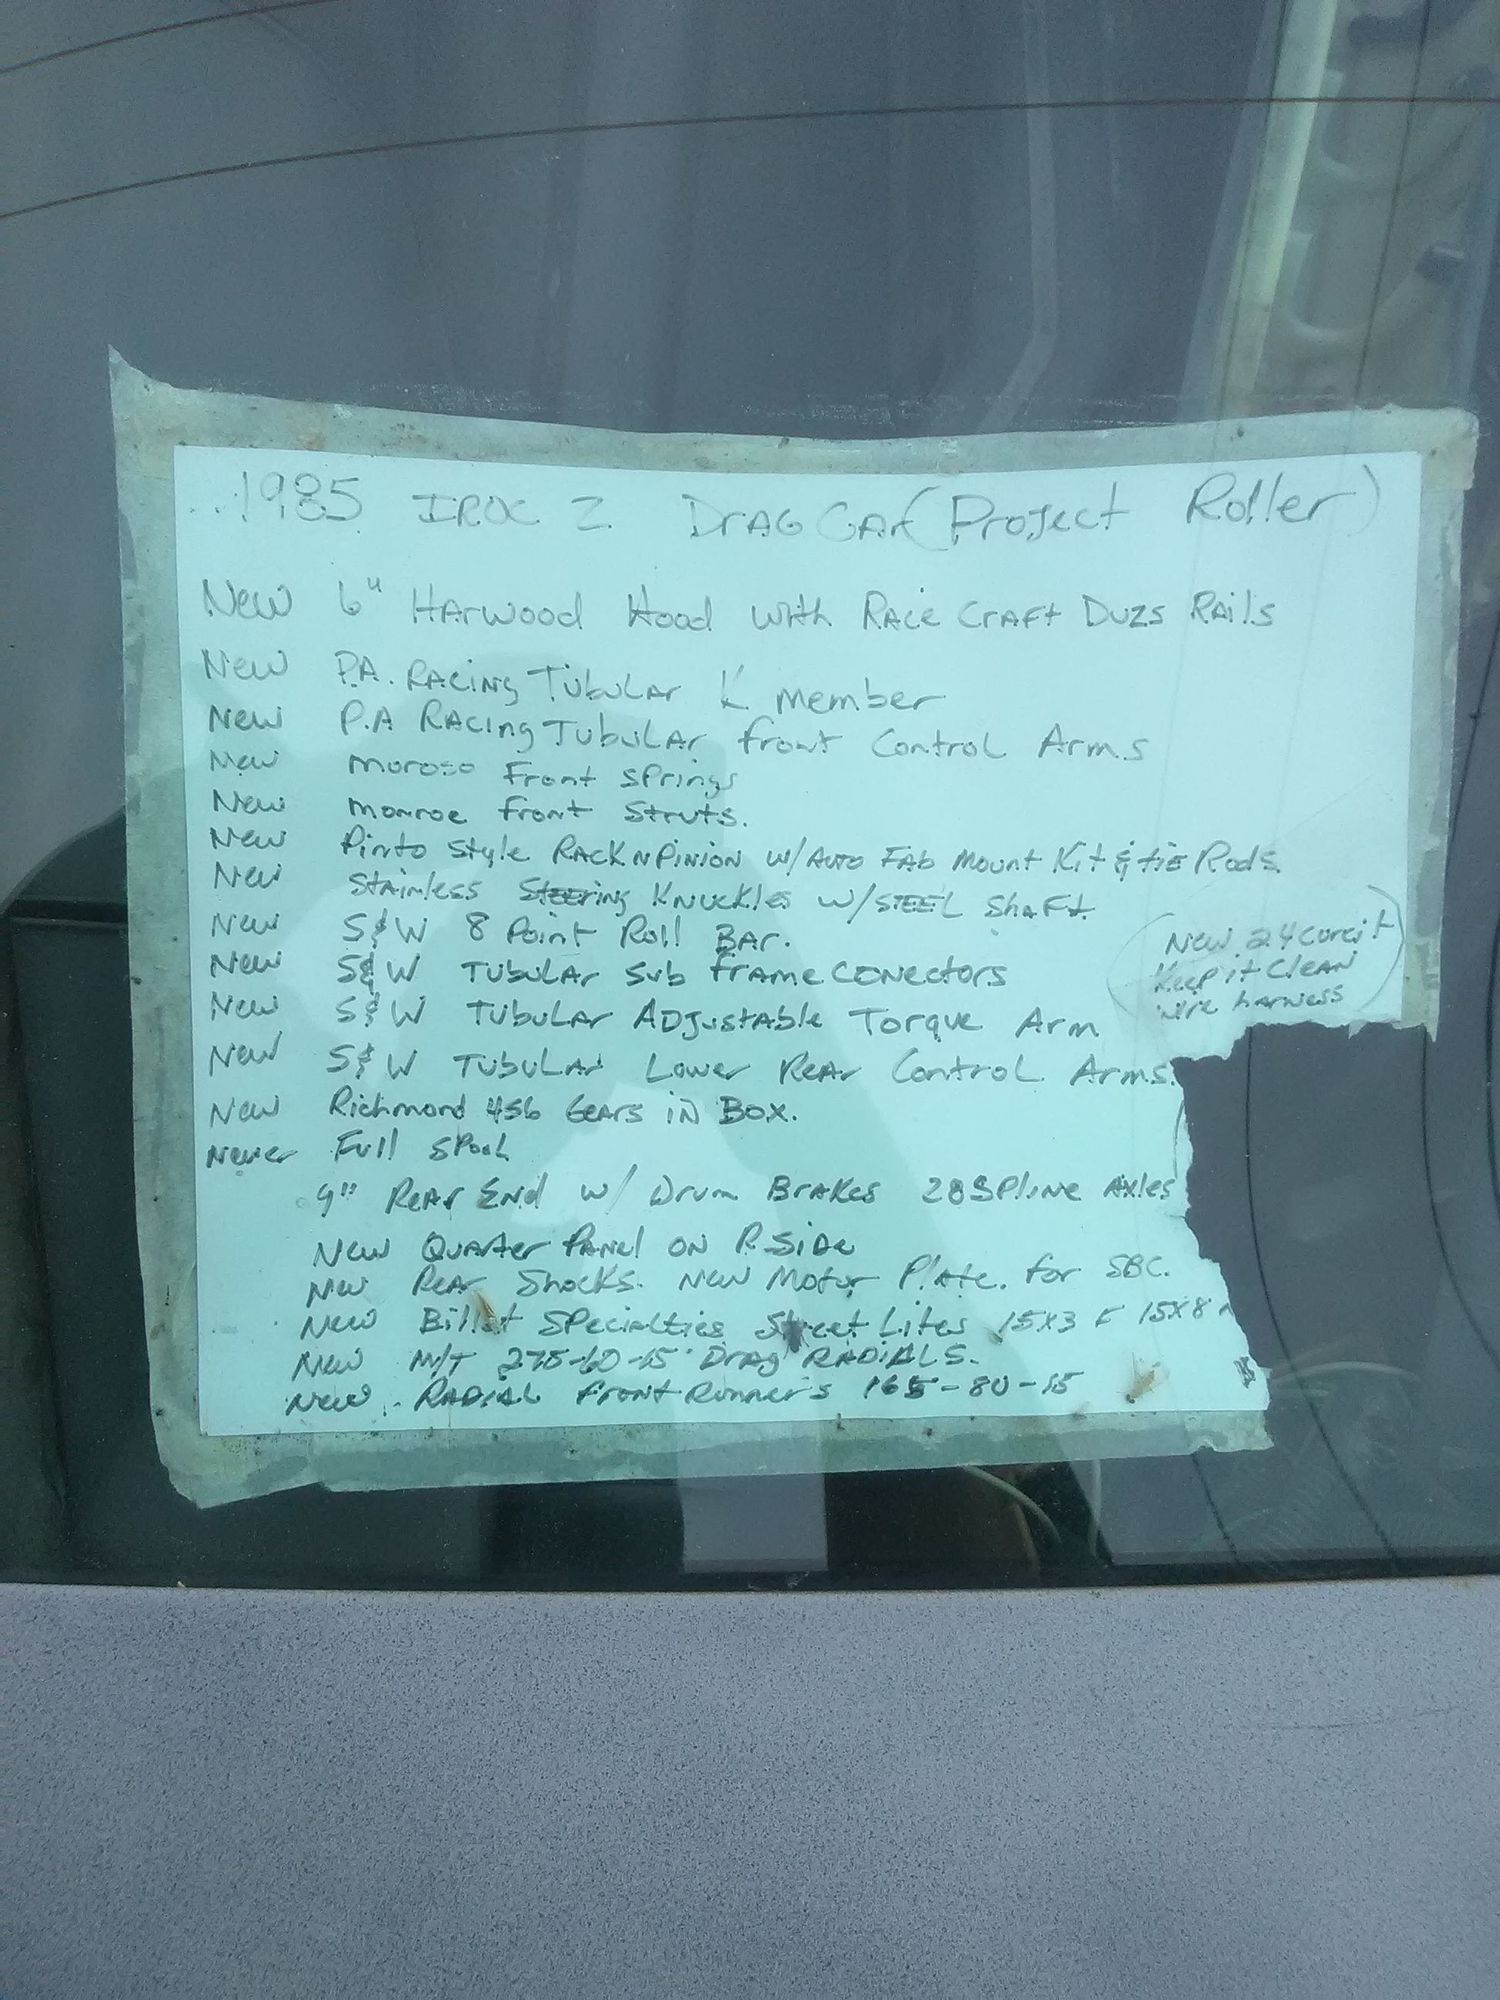 1985 IROC Z DRAG CAr (Project Roller)
New 6" HArwood Hood with RACE CrAFt DUZS RAils
New P.A. RACING TUbULAr K member
New P.A RACING TUbULAr front Control Arms
New moroso Front springs
New monroe front Struts.
New Pinto Style RACK N PINION w/ AUTO FAb Mount Kit & tie Rods.
New Stainless Steering Knuckles w/ STEEL ShaFt
New S&W 8 Point Roll BAr.
New S&W TUbULAr Sub frAme CONectors
New S&W TUbULAr ADJustAble Torque Arm
(New 24 curcit
Keep it CleAN
wire harness)
New S&W TUbULAr Lower ReAr Control Arms.
New Richmond 456 GeArs iN BOX.
Newer Full SPool
9" ReAr End w/ Drum BrAKes 28 SPline Axles
New QuArter PAnel ON R Side
New ReAr Shocks. New Motor PlAte. for SBC.
New Billet SPecialties Street Lites 15x3 F 15x8
New M/T 275-60-15 DrAg RADIALS.
New RADIAL Front Runners 165-80-15